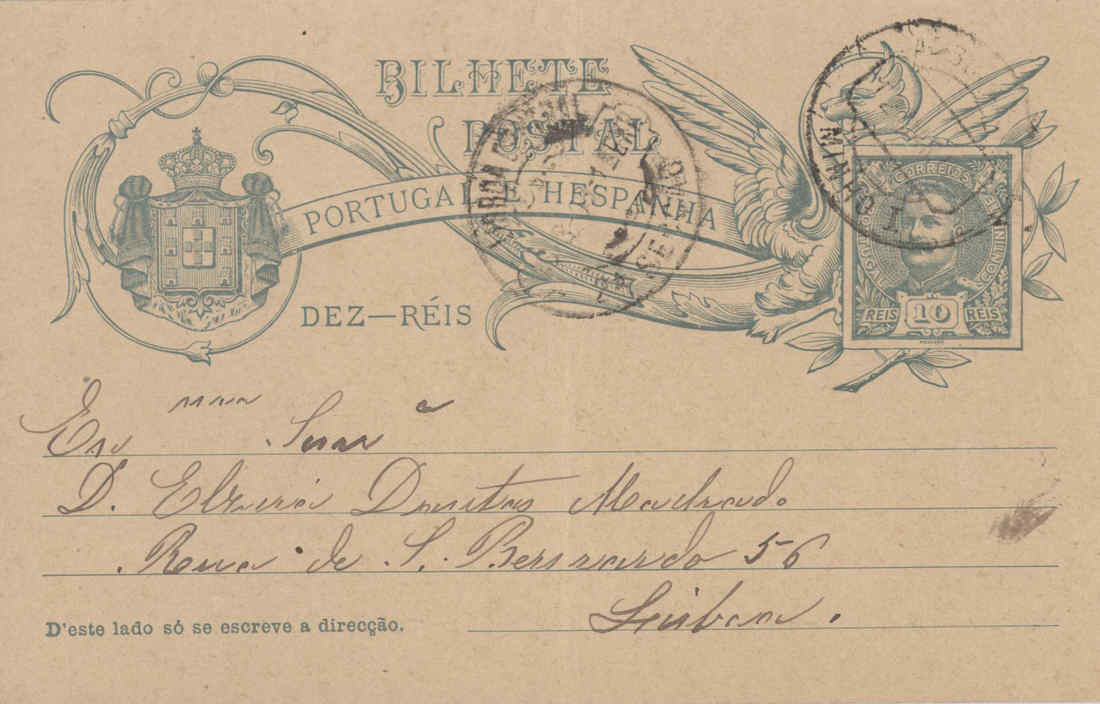 BILHETE
POSTAL
PORTUGAL E HESPANHA
DEZ—RÉIS
CORREIOS
REIS 10 REIS
MINHO
Ex.ma Snra
D. Elzira Dantas Machado
Rua de S. Bernardo 56
Lisboa.
D'este lado só se escreve a direcção.